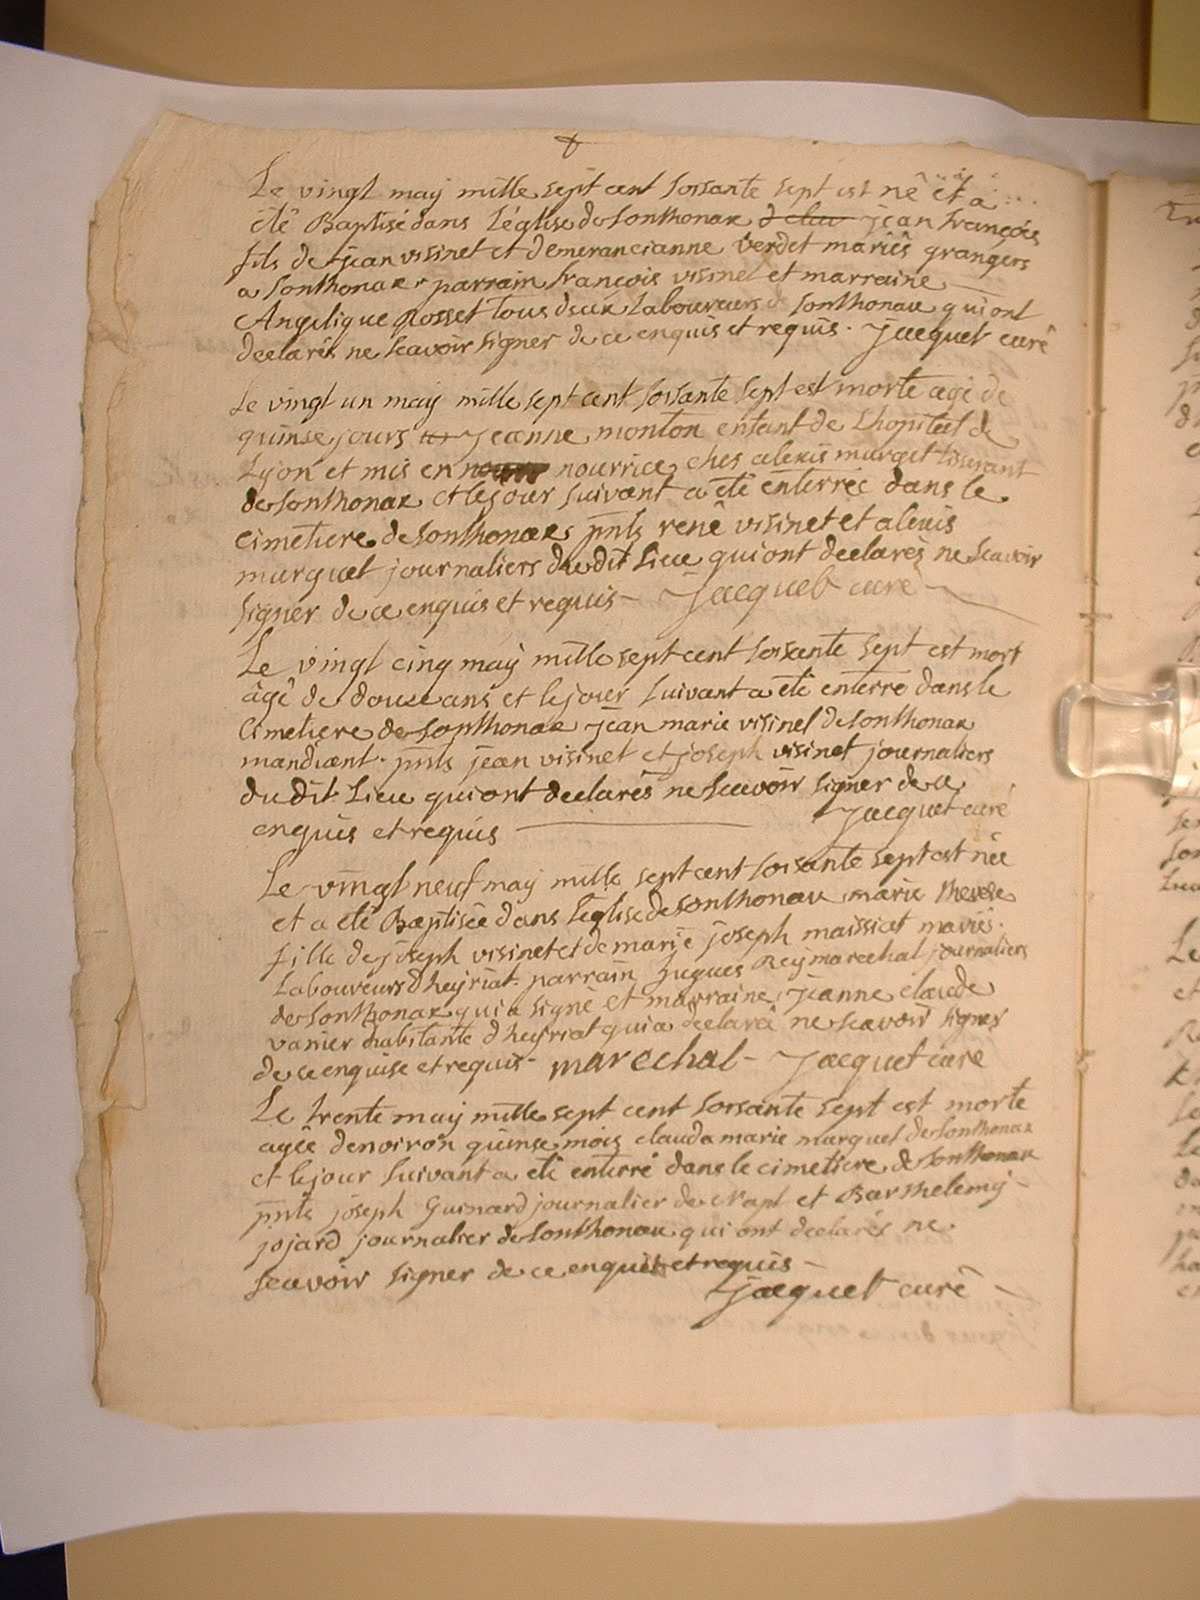 Le vingt may mille sept cent soisante sept est né et a
été Baptisé dans l'église de Sonthonax jean françois
fils de jean visinet et d'emerancianne verdet mariés grangers
a Sonthonax parrain françois visinet et marraine
Angelique Rosset tous deux Laboureurs de Sonthonax qui ont
declarés ne scavoir signer de ce enquis et requis. Jacquet curé
Le vingt un may mille sept cent soisante sept est morte agé de
quinse jours jeanne monton enfant de L'hopital de
Lyon et mis en nourrice ches alexis murget
de Sonthonax et le jour suivant a été enterrée dans le
cimetiere de Sonthonax pnts renê visinet et alexis
murguet journaliers du dit Lieu qui ont declarés ne Scavoir
signer de ce enquis et requis - Jacquet curé
Le vingt cinq may mille sept cent soisante sept est mort
âgé de douze ans et le jour suivant a été enterré dans le
Cimetiere de Sonthonax jean marie visinet de Sonthonax
mandiant. pnts jean visinet et joseph visinet journaliers
du dit Lieu qui ont declarés ne scavoir signer de ce
enquis et requis Jacquet curé
Le vingt neuf may mille sept cent soisante sept est née
et a été Baptisée dans l'église de Sonthonax marie therese
fille de joseph visinet et de marie joseph maissiat mariés
Laboureurs d'heyriat. parrain hugues Rey marechal journaliers
de Sonthonax qui a signé et marraine jeanne claude
vanier habitante d'heyriat qui a declaré ne scavoir signer
de ce enquise et requis - marechal - Jacquet curé
Le trente may mille sept cent soisante sept est morte
agée d'environ quinse mois clauda marie murguet de Sonthonax
et le jour suivant a été enterré dans le cimetiere de Sonthonax
pnts joseph Guinard journalier de Napt et Barthelemy
jojard journalier de Sonthonax qui ont declarés ne
scavoir signer de ce enquis et requis -
Jacquet curé